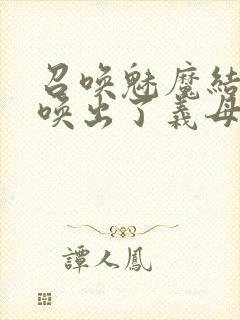 召唤魅魔结
唤出了義母
譚人鳳